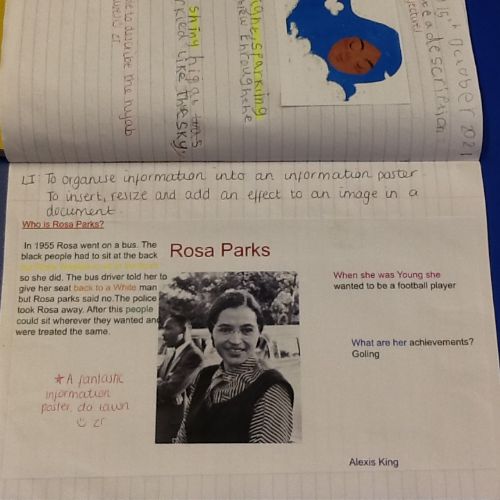 October 2021
a description
shiny hijab was
like the sky.
to describe the hijab
LI: To organise information into an information poster
To insert, resize and add an effect to an image in a
document
Who is Rosa Parks?
In 1955 Rosa went on a bus. The
black people had to sit at the back
so she did. The bus driver told her to
give her seat back to a White man
but Rosa parks said no.The police
took Rosa away. After this people
could sit wherever they wanted and
were treated the same.
Rosa Parks
When she was Young she
wanted to be a football player
What are her achievements?
Goling
* A fantastic
information
poster, da iawn
Alexis King